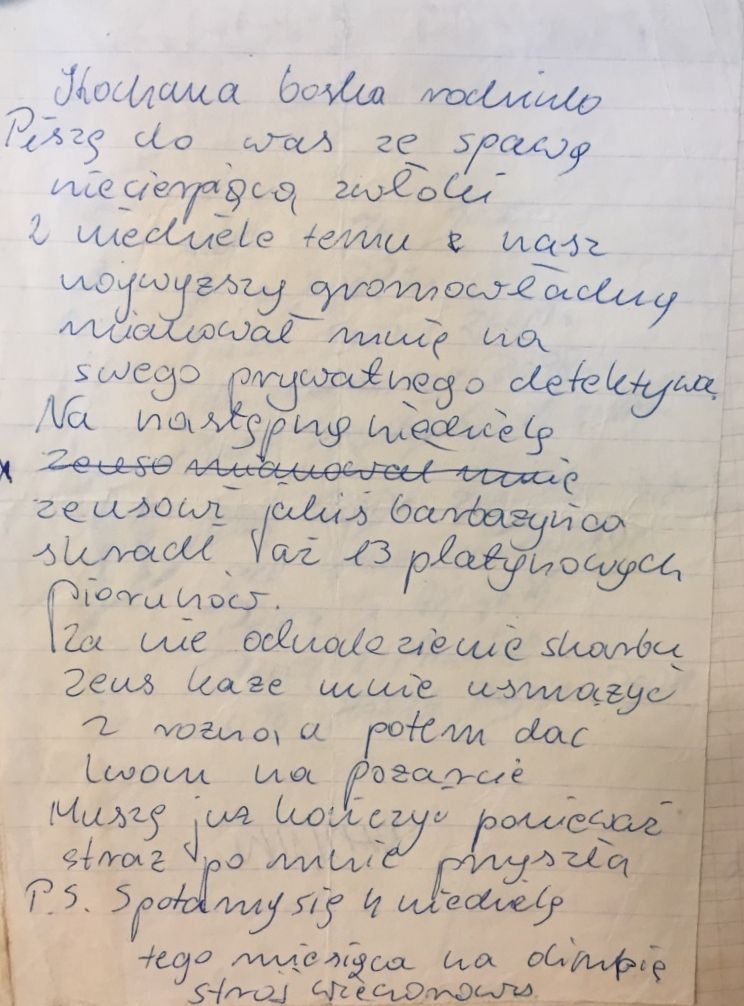 Kochana boska rodzinko
Piszę do was ze spawą
niecierpiącą zwłoki
2 niedziele temu nasz
najwyższy gromowładny
mianował mnię na
swego prywatnego detektywa
Na następną niedzielę
Zeuso mianował mnie
zeusowi jakiś barbażyńca
skradł aż 13 platynowych
piorunów.
Za nie odnalezienie skarbu
Zeus każe mnie usmażyć
z rożna, a potem dac
lwom na pożarcie
Muszę już kończyć ponieważ
straż po mnie przyszła
P.S. Spotamy się 4 niedzielę
tego miesiąca na olimpie
strój wieczorowo.